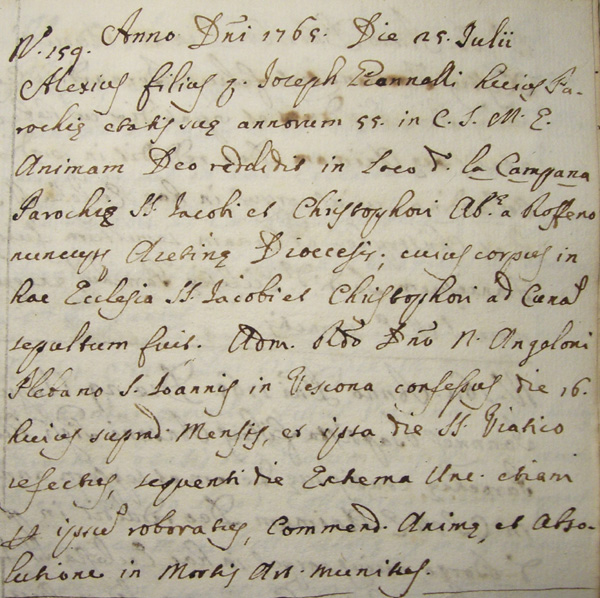 Anno Dni 1765. Die 25. Julii
N. 159.
Alexius filius q. Joseph Giannelli huius Pa-
rochię etatis suę annorum 55. in C. S. M. E.
Animam Deo reddidit in Loco d. la Campana
Parochię SS. Jacobi et Christophori Ab. a Roffeno
nuncup. Aretinę Dioecesis; cuius corpus in
hac Ecclesia SS. Jacobi et Christophori ad Cuna
sepultum fuit. Adm. Rdo Dno N. Angeloni
Plebano S. Joannis in Vescona confessus die 16.
huius suprad. Mensis, et ipsa die SS. Viatico
refectus, sequenti die Extrema Unc. etiam
p ipsu roboratus, Commend. Animę, et Abso-
lutione in Mortis Art. munitus.